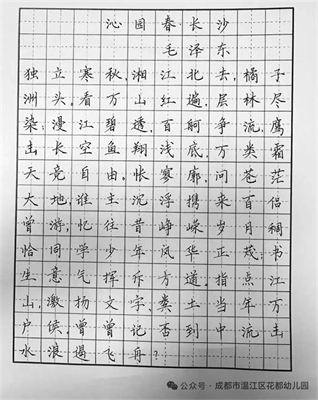 沁园春长沙
毛泽东
独立寒秋,湘江北去,橘子
洲头。看万山红遍,层林尽
染;漫江碧透,百舸争流。鹰
击长空,鱼翔浅底,万类霜
天竞自由。怅寥廓,问苍茫
大地,谁主沉浮携来百侣
曾游,忆往昔峥嵘岁月稠
恰同学少年风华正茂;书
生意气挥斥方遒。指点江
山,激扬文字,粪土当年万
户侯。曾曾记否到中流击
水浪遏飞舟?
公众号·成都市温江区花都幼儿园